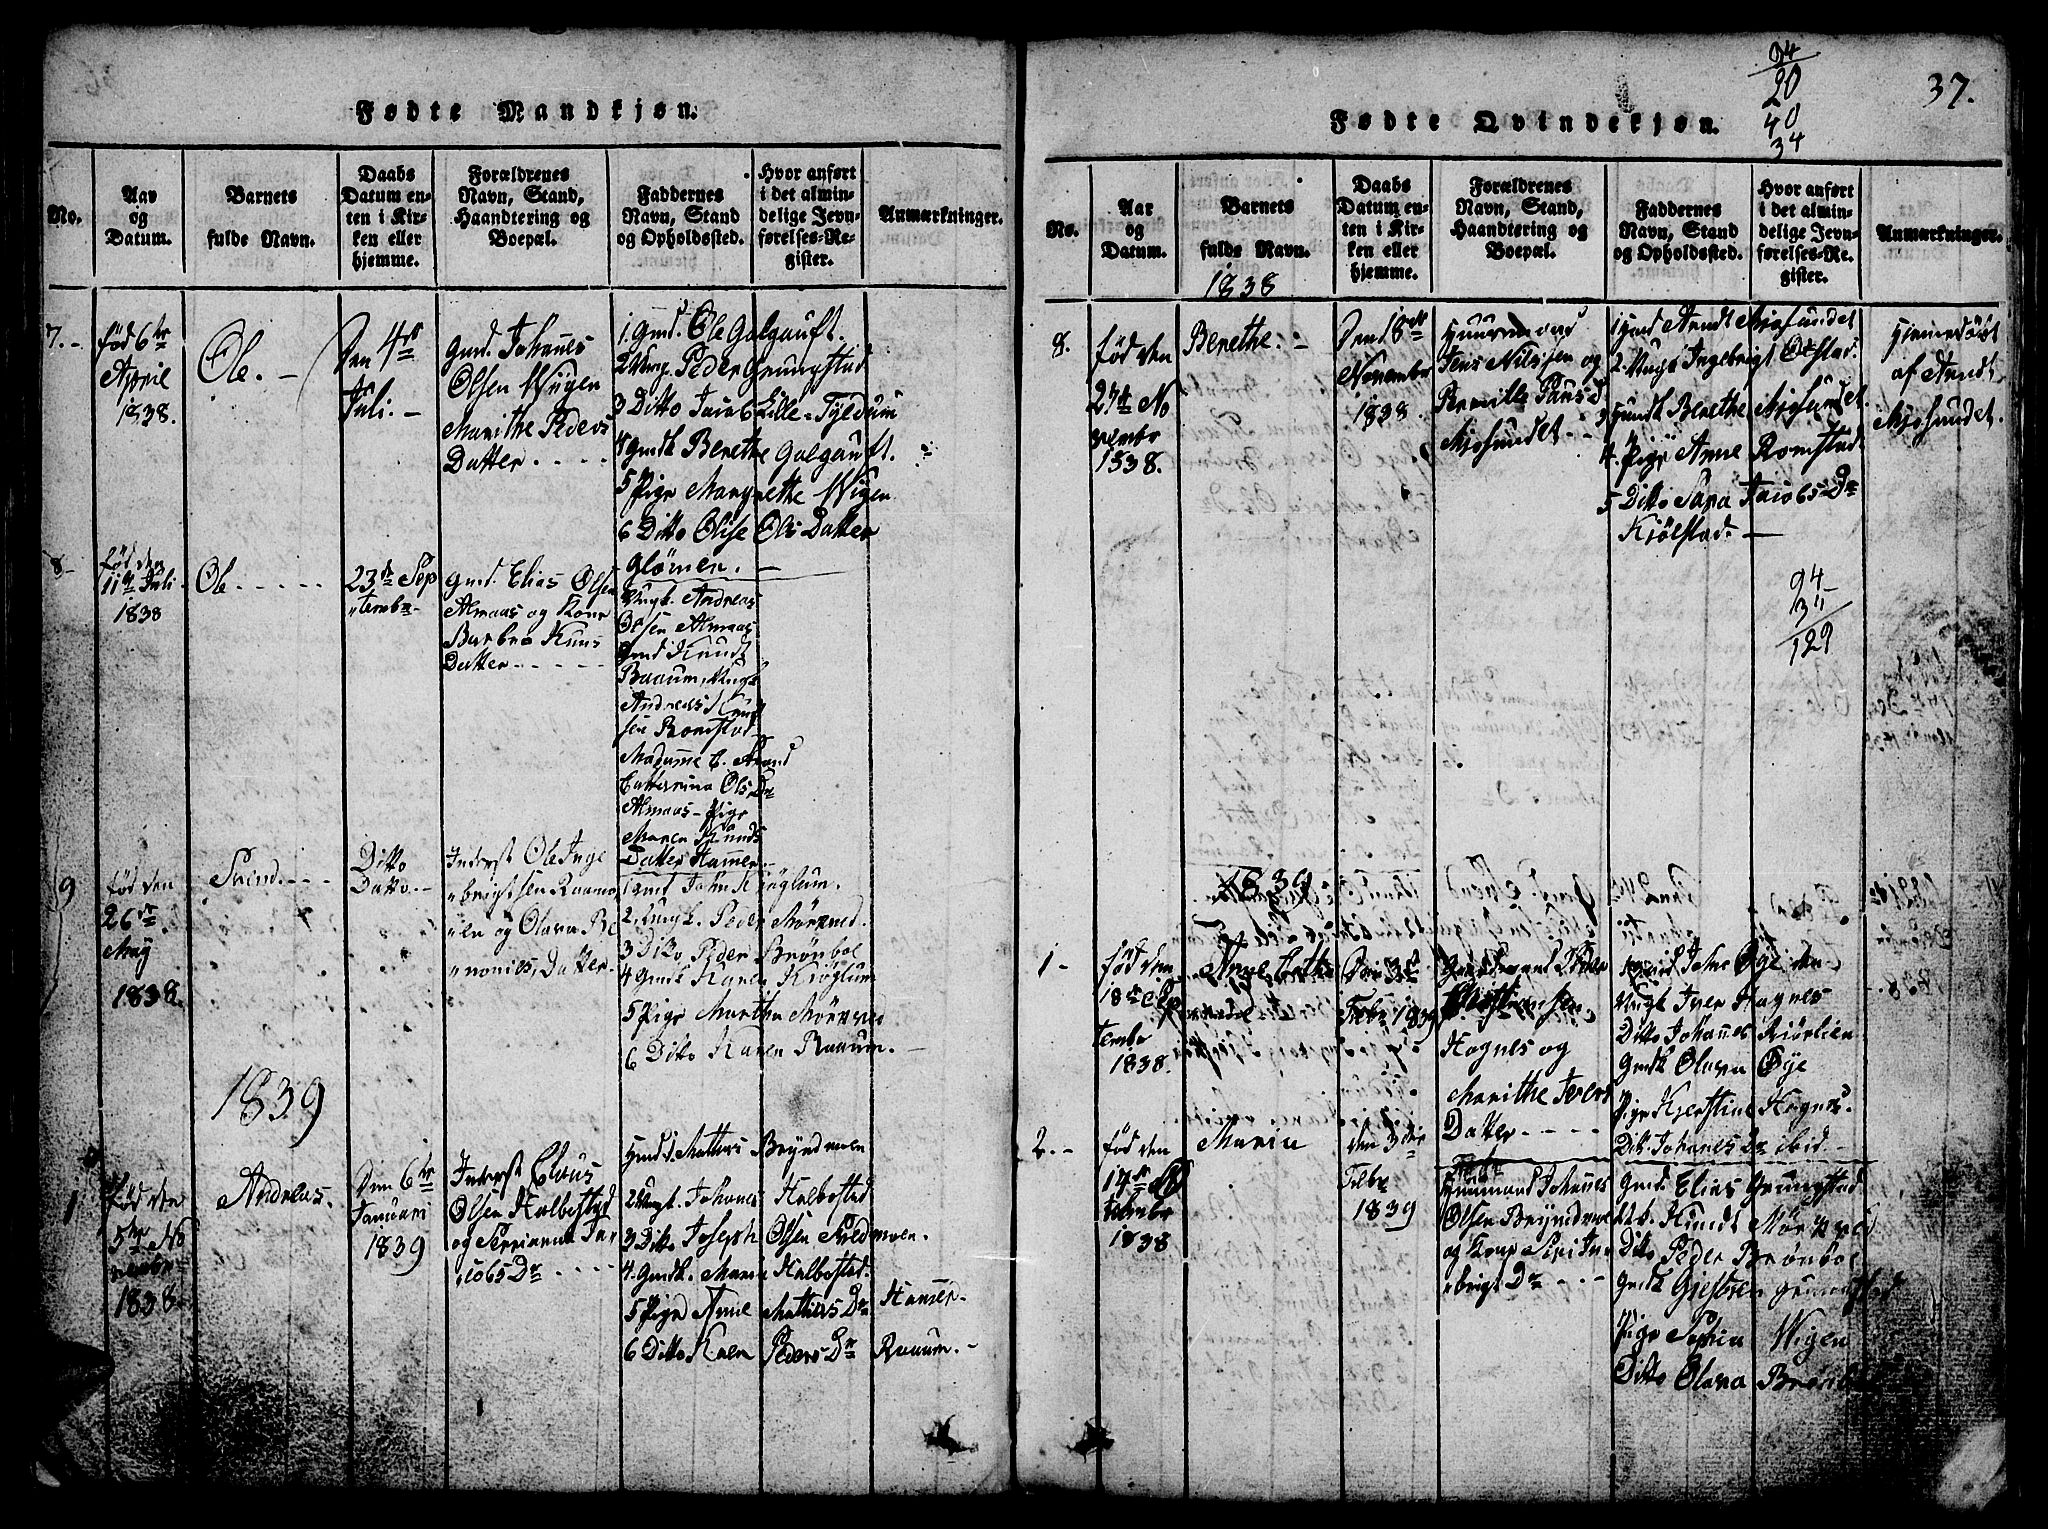 Fødte Mandkjøn.
No.
Aar
og
Datum.
Barnets
fulde Navn.
Daabs
Datum en-
ten i Kir-
ken eller
hjemme.
Forældrenes
Navn, Stand,
Haandtering og
Boepæl.
Faddernes
Navn, Stand
og Opholdssted.
Hvor anført
i det almin-
delige Jevn-
førelses-Re-
gister.
Anmærkninger.
7.-
fød 6te
April
1838.
Ole. -
Den 4de
Juli. -
Gmd. Johannes
Olsen Wiigen
Marithe Peders
Datter. - - - -
1. Gmd. Ole Galgauft.
2 Ungk. Peder Grungstad
3 Ditto Jacob Lille-Tyldum
4 Gmdk Berethe Galgauft.
5 Pige Margrethe Wigen
6 Ditto Olise Ols Datter
Glømen. -
8-
fød den
11te Juli
1838
Ole - - - - -
23de Sep
"tembr-
Gmd. Elias Olsen
Almaas og Kone
Barbro Knus
Datter - - - - -
Ungk. Andreas
Olsen Almaas
Gmd Knudt
Raaum, Ungk
Andreas Knud
sen Romstad
Madamme E. Strand
Catterina Ols Dr
Almaas - Pige
Maren Knuds
Datter Hammer
9
fød den
26de
May
1838.
Svend. - - -
Ditto
Datto. -
Inderst Ole Inge
"brigtsen Raaum
1 Gmd John Krøglum.
2. Ungk. Peder Mørkved.
3 Ditto, Peder Brønbol
4 Gmdk Karen Krøglum
5 Pige Martha Mørkved
6 Ditto Karen Raaum. -
"en og Olava Be
"nonies, Datter-
1839
1
fød den
5te No
vembr
1838.
Andreas.
Den 6te
Januari
1839
Inderst Claus
Olsen Halbostad
og Serrianna Ja
"cobs Dr - - - -
Gmd. Mathis Bryndmoen
2 Ungk. Johanes Halbostad
3 Ditto Joseph Olsen Svedmoen.
4. Gmdk. Maria Halbostad.
5 Pige Anne Mathiss Dr Hammer-
6 Ditto Karen Peders Dr Raaum. -
37.
94
20
40
34
Fødte Qvindekjøn.
No.
Aar
og
Datum.
Barnets
fulde Navn.
Daabs
Datum en-
ten i Kir-
ken eller
hjemme.
Forældrenes
Navn, Stand,
Haandtering og
Boepæl.
Faddernes
Navn, Stand
og Opholdssted.
Hvor anført
i det almin-
delige Jevn-
førelses-Re-
gister.
Anmærkninger.
1838
8.
fød den
27de No
vembr
1838.
Berethe. -
Den 18de
Novembr
1838.
Huusmand
Jens Nilssen og
Pernille Pauls D
Mjosundet - -
1 Gmd Arndt Mjosundet
2. Ungk Ingebrigt Olstad.
3 Gmdk Berethe Mjosundet.
4. Pige Anne Romstad.
5 Ditto Sara Jacobs Dr
Kjølstad. -
Hjemedøbt
af Arndt
Mjosundet.
94
34
129
1839
1 -
fød den
18de Sep
tembr
1838.
Anne
Den 3de
Febr 1839
Hagnes og
Marithe Ivers
Datter - - - -
Gmd. John Øye den
Ungk Iver Hagnes
Ditto Johannes
Gmdk Olava Øye
Pige Kjerstine Hagnes.
Dito Johanes Dr ibid. -
2. -
fød den
14de
1838
Maria
den 3die
Febr
1839
Huusmand Johannes
Olsen Bryndmoe
og Kone Siri In
"brigt Dr - - -
Gmd. Elias Grungstad
Ungk. Knudt Mørkved
Ditto Peder Brønbol
Gmdk Gjesbren Grungstad
Pige Sophia Wigen
Ditto Olava Brønbol